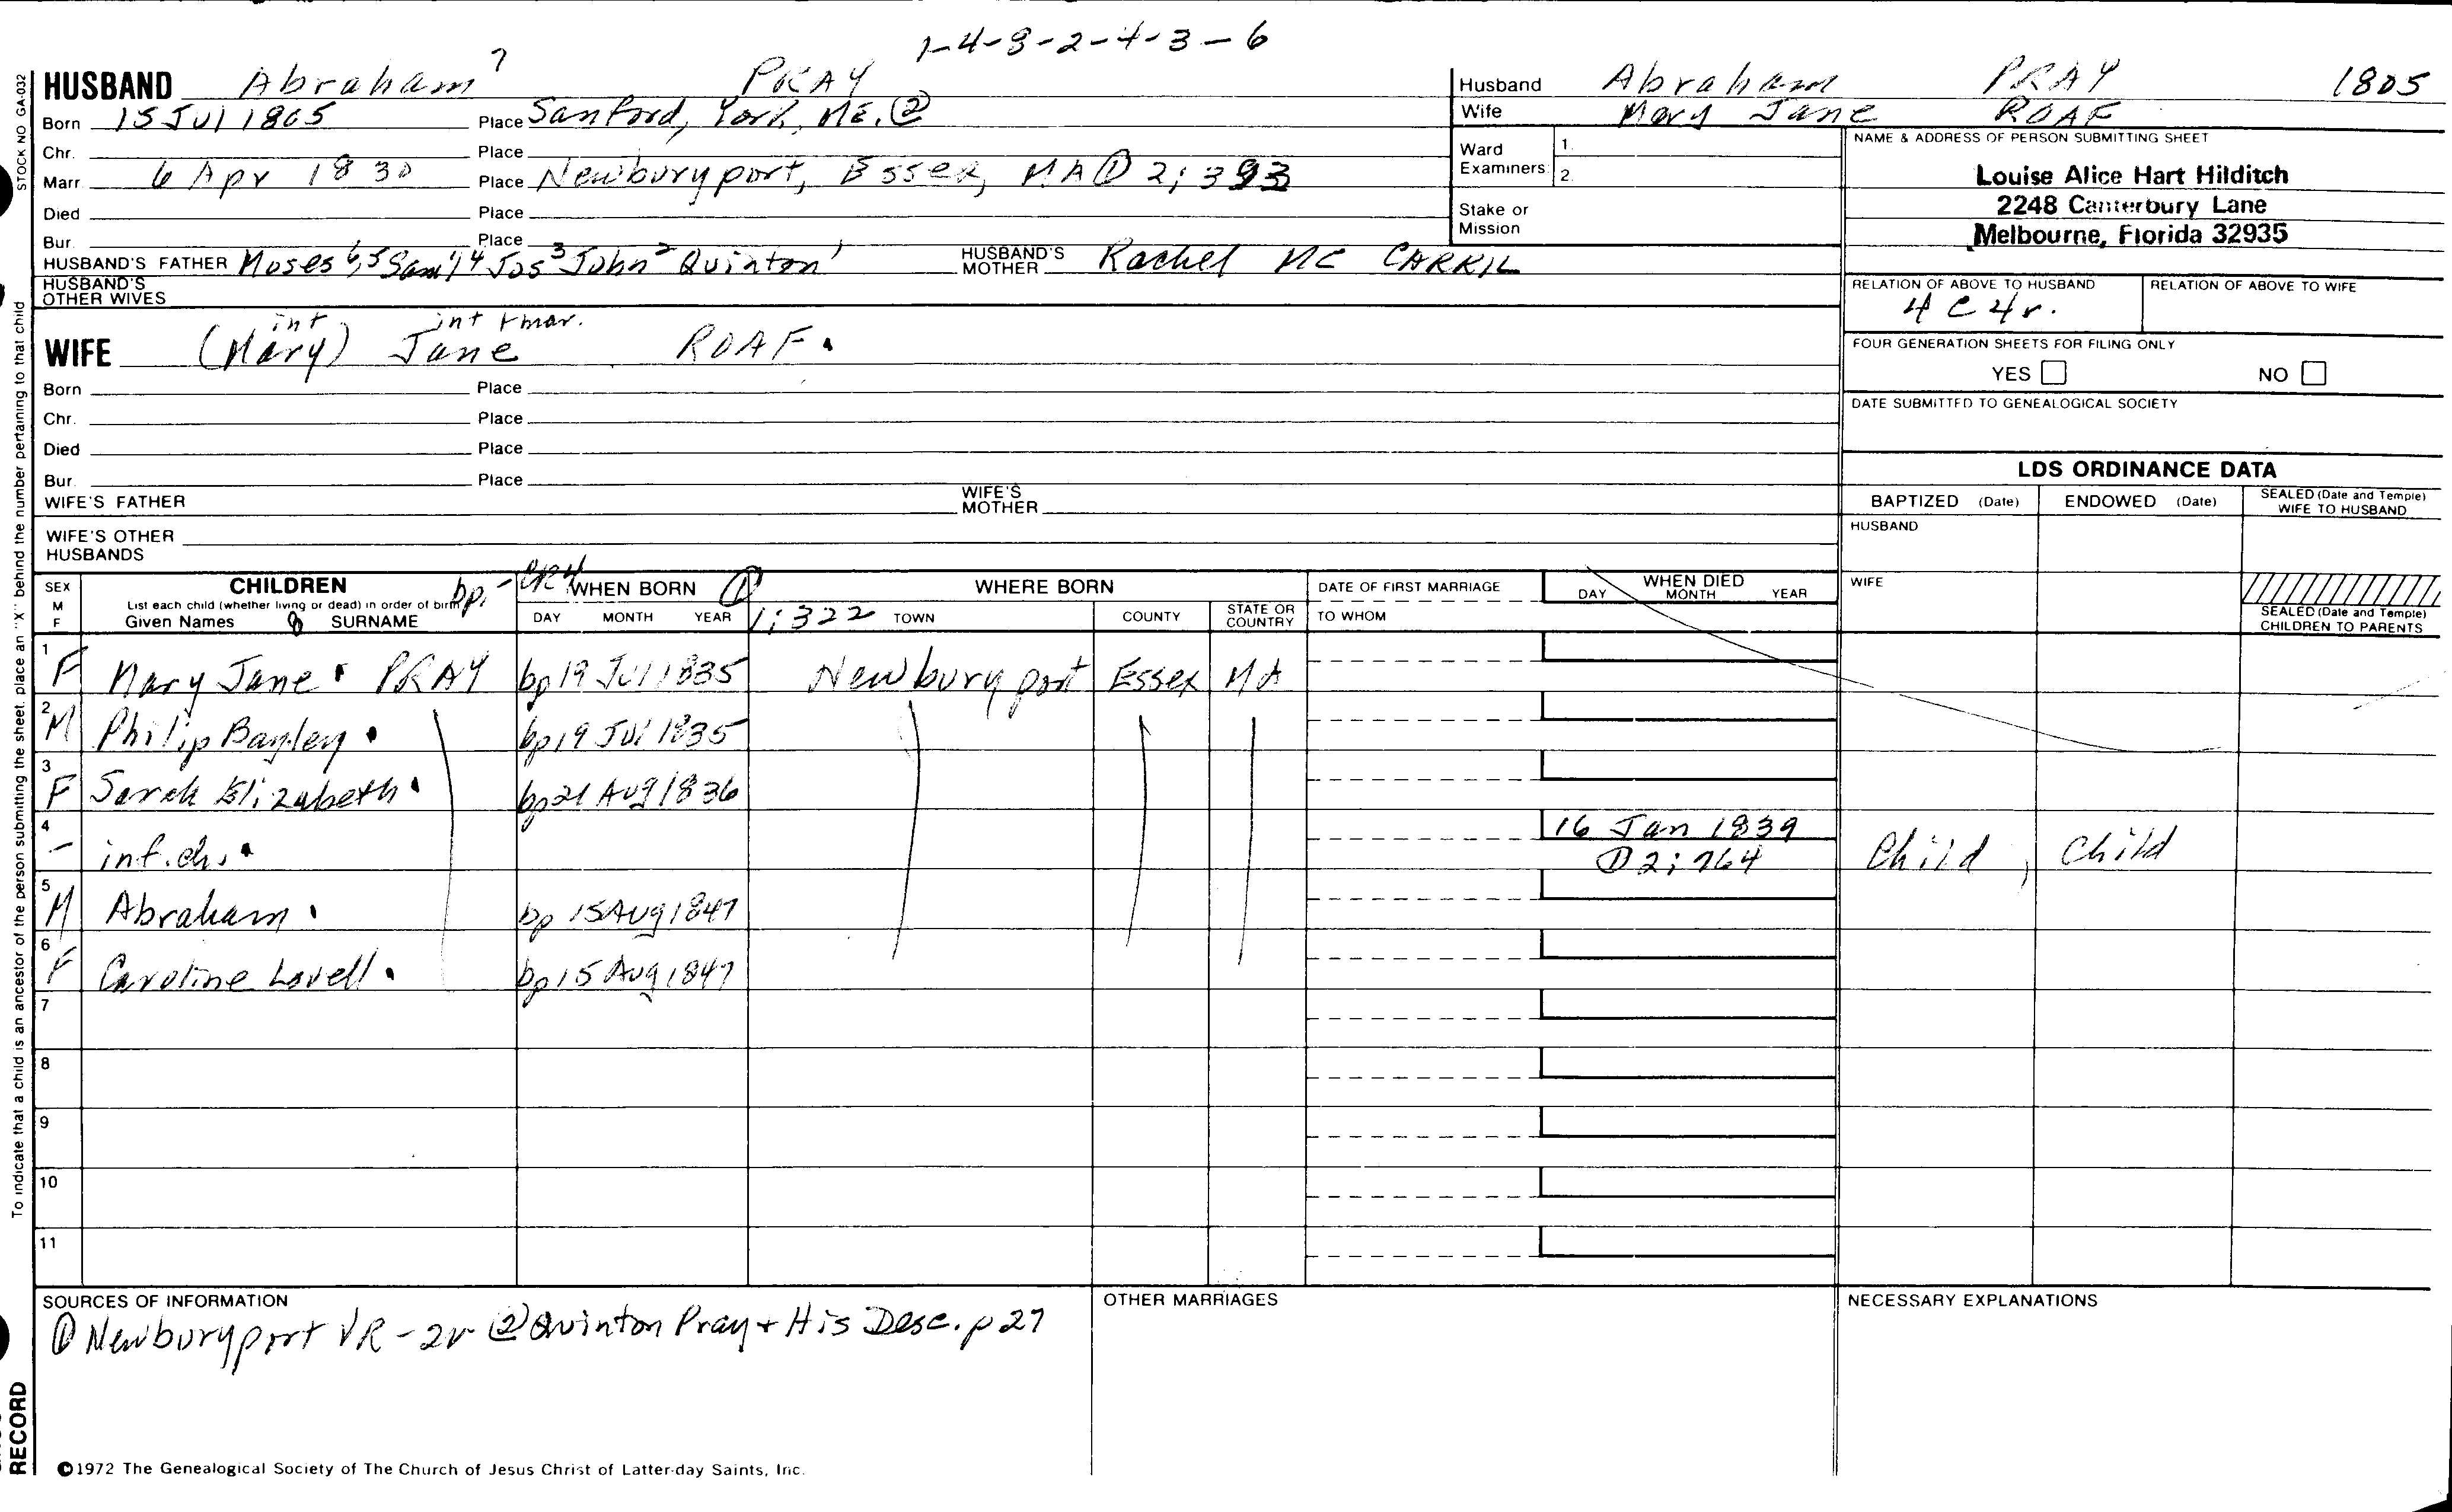 1-4-8-2-4-3-6
HUSBAND Abraham 7 PRAY
Born 15 Jul 1805 Place Sanford, York, ME. ②
Chr. Place
Marr. 6 Apr 1830 Place Newburyport, Essex, MA ① 2; 393
Died Place
Bur. Place
HUSBAND'S FATHER Moses 6,5 Sam'l 4 Jos 3 John 2 Quinton 1 HUSBAND'S MOTHER Rachel MC CARRIL
HUSBAND'S OTHER WIVES
int int + mar.
WIFE (Mary) Jane ROAF.
Born Place
Chr. Place
Died Place
Bur. Place
WIFE'S FATHER WIFE'S MOTHER
WIFE'S OTHER HUSBANDS
Husband Abraham PRAY 1805
Wife Mary Jane ROAF
Ward Examiners: 1. 2.
Stake or Mission
NAME & ADDRESS OF PERSON SUBMITTING SHEET
Louise Alice Hart Hilditch
2248 Canterbury Lane
Melbourne, Florida 32935
RELATION OF ABOVE TO HUSBAND RELATION OF ABOVE TO WIFE
4 C 4 r.
FOUR GENERATION SHEETS FOR FILING ONLY
YES NO
DATE SUBMITTED TO GENEALOGICAL SOCIETY
LDS ORDINANCE DATA
BAPTIZED (Date) ENDOWED (Date) SEALED (Date and Temple) WIFE TO HUSBAND
HUSBAND
WIFE
SEALED (Date and Temple) CHILDREN TO PARENTS
SEX M F
CHILDREN bp.- CR4 WHEN BORN ① WHERE BORN DATE OF FIRST MARRIAGE WHEN DIED
List each child (whether living or dead) in order of birth
Given Names SURNAME DAY MONTH YEAR 1; 322 TOWN COUNTY STATE OR COUNTRY TO WHOM DAY MONTH YEAR
1 F Mary Jane. PRAY bp 19 Jul 1835 Newburyport Essex MA
2 M Philip Bayley. bp 19 Jul 1835
3 F Sarah Elizabeth. bp 21 Aug 1836
4 - inf. ch. 16 Jan 1839 ① 2; 764 Child, Child
5 M Abraham. bp 15 Aug 1847
6 F Caroline Lovell. bp 15 Aug 1847
7
8
9
10
11
SOURCES OF INFORMATION OTHER MARRIAGES NECESSARY EXPLANATIONS
① Newburyport VR - 2v ② Quinton Pray + His Desc. p 27
©1972 The Genealogical Society of The Church of Jesus Christ of Latter-day Saints, Inc.
STOCK NO GA-032
To indicate that a child is an ancestor of the person submitting the sheet, place an "X" behind the number pertaining to that child
RECORD